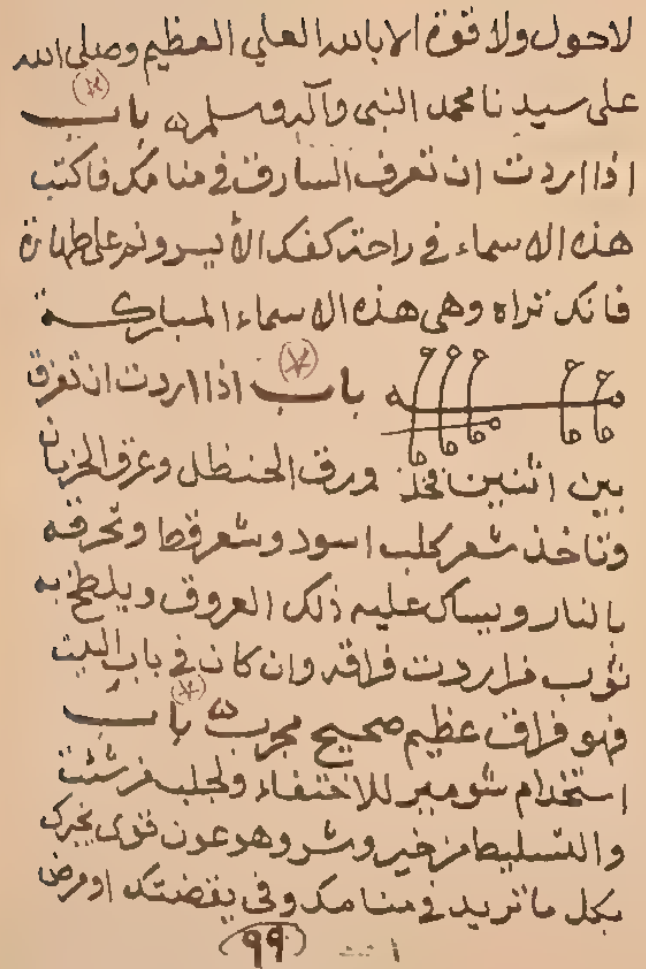 لاحول ولا قوة الا بالله العلي العظيم وصلى الله
على سيدنا محمد النبي وآله وسلم باب
اذا اردت ان تعرف السارق في منامك فاكتب
هذه الاسماء في راحة كفك الأيسر ونم على طهارة
فانك تراه وهي هذه الاسماء المباركة
باب اذا اردت ان تفرق
بين اثنين فخذ ورق الحنظل وعرق
وتاخذ شعر كلب اسود وشعر قط وتحرقه
بالنار ويساك عليه ذلك العروق ويلطخ به
ثوب من اردت فراقه وان كان في باب البيت
فهو فراق عظيم صحيح مجرب باب
استخدام للاختفاء ولجلب من شئت
والتسليط من خير وشر وهو عون قوى يخبرك
بكل ما تريد في منامك وفي يقضتك او مرض
٩٩